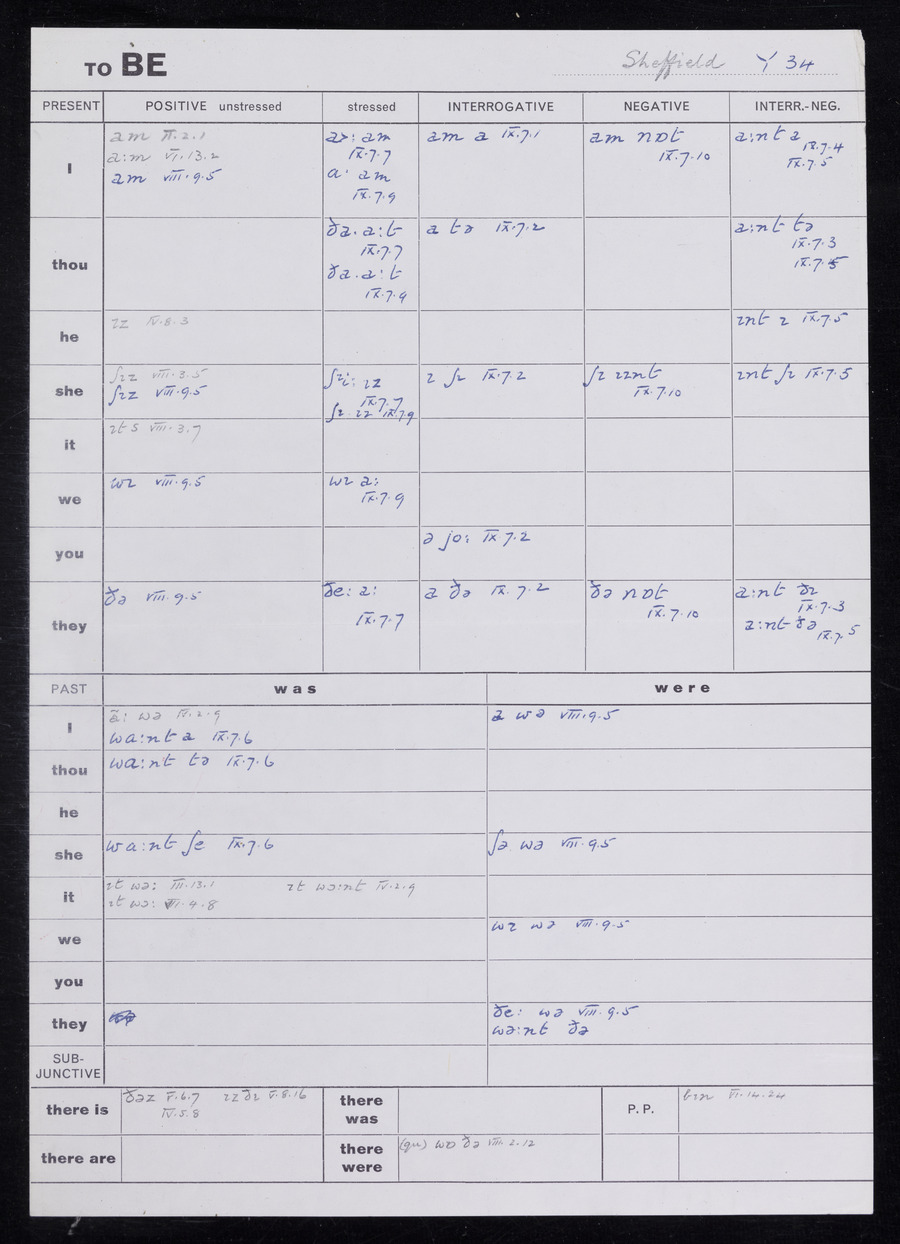 TO BE Sheffield Y 34
PRESENT POSITIVE unstressed stressed INTERROGATIVE NEGATIVE INTERR.-NEG.
I
am II.2.1
a:m VI.13.2
am VIII.9.5
IX.7.7
IX.7.9
am a IX.7.1
am nɒt
IX.7.10
a:nt a
IX.7.4
IX.7.5
thou
ða. a:t
IX.7.7
ða. a:t
IX.7.9
a tə IX.7.2
a:nt tə
IX.7.3
IX.7.5
he
ɪz IV.8.3
ɪnt ɪ IX.7.5
she
ʃɪz VIII.3.5
ʃɪz VIII.9.5
ʃɪi: ɪz
IX.7.7
ʃɪ ɪz IX.7.9
ɪ ʃɪ IX.7.2
ʃɪ ɪznt
IX.7.10
ɪnt ʃɪ IX.7.5
it
ɪts VIII.3.7
we
wɪ VIII.9.5
wɪ a:
IX.7.9
you
ə jo: IX.7.2
they
ðə VIII.9.5
ðe: a:
IX.7.7
a ðə IX.7.2
ðə nɒt
IX.7.10
a:nt ðɪ
IX.7.3
a:nt ðə
IX.7.5
PAST was were
I
a: wə IV.2.9
wa:nt a IX.7.6
a wə VIII.9.5
thou
wa:nt tə IX.7.6
he
she
wa:nt ʃe IX.7.6
ʃə wə VIII.9.5
it
ɪt wə: III.13.1 ɪt wɔ:nt IV.2.9
ɪt wɔ: VI.4.8
we
wɪ wə VIII.9.5
you
they
ðe: wə VIII.9.5
wə:nt ðə
SUB-
JUNCTIVE
there is
ðəz V.6.7 ɪz ðɪ V.8.16
IV.5.8
there
was
P.P.
bɪn VI.14.24
there are
there
were
(qu) wɒ ðə VIII.2.12